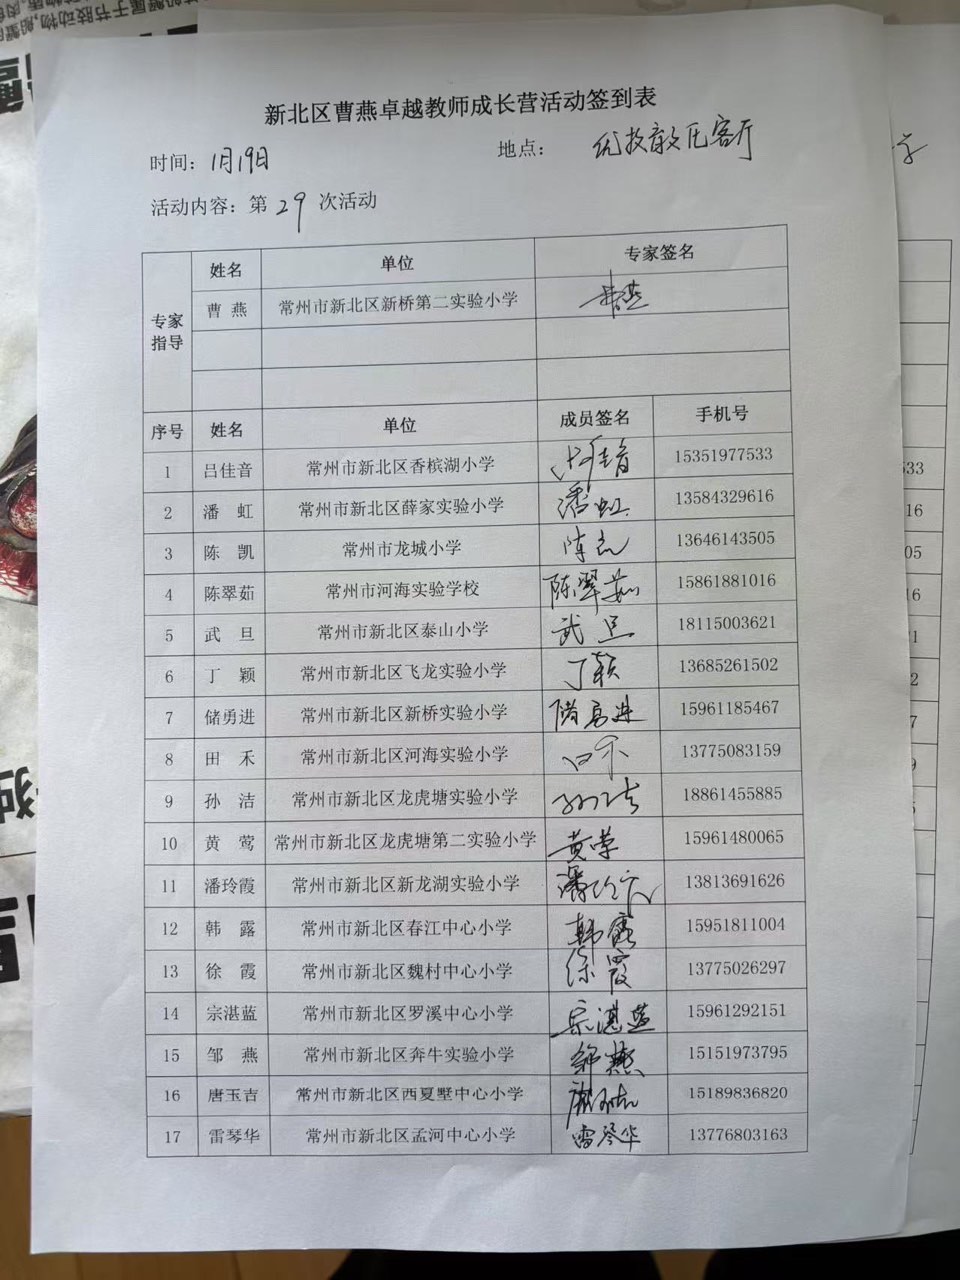 新北区曹燕卓越教师成长营活动签到表
时间：1月19日 地点：优教育文化客厅
活动内容：第 29 次活动
专家指导 姓名 单位 专家签名
曹 燕 常州市新北区新桥第二实验小学 曹燕
序号 姓名 单位 成员签名 手机号
1 吕佳音 常州市新北区香槟湖小学 吕佳音 15351977533
2 潘 虹 常州市新北区薛家实验小学 潘虹 13584329616
3 陈 凯 常州市龙城小学 陈凯 13646143505
4 陈翠茹 常州市河海实验学校 陈翠茹 15861881016
5 武 旦 常州市新北区泰山小学 武旦 18115003621
6 丁 颖 常州市新北区飞龙实验小学 丁颖 13685261502
7 储勇进 常州市新北区新桥实验小学 储勇进 15961185467
8 田 禾 常州市新北区河海实验小学 田禾 13775083159
9 孙 洁 常州市新北区龙虎塘实验小学 孙洁 18861455885
10 黄 莺 常州市新北区龙虎塘第二实验小学 黄莺 15961480065
11 潘玲霞 常州市新北区新龙湖实验小学 潘玲霞 13813691626
12 韩 露 常州市新北区春江中心小学 韩露 15951811004
13 徐 霞 常州市新北区魏村中心小学 徐霞 13775026297
14 宗湛蓝 常州市新北区罗溪中心小学 宗湛蓝 15961292151
15 邹 燕 常州市新北区奔牛实验小学 邹燕 15151973795
16 唐玉吉 常州市新北区西夏墅中心小学 唐玉吉 15189836820
17 雷琴华 常州市新北区孟河中心小学 雷琴华 13776803163